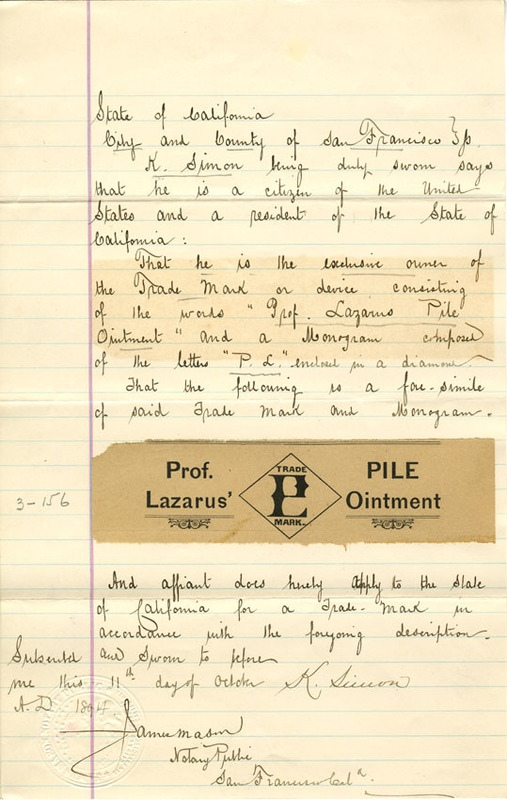 State of California
City and County of San Francisco } ss
K. Simon being duly sworn says
that he is a citizen of the United
States and a resident of the State of
California :
That he is the exclusive owner of
the Trade Mark or device consisting
of the words "Prof. Lazarus Pile
Ointment" and a Monogram composed
of the letters "P. L." enclosed in a diamond.
That the following is a fac-simile
of said Trade Mark and Monogram.
Prof. Lazarus' PILE Ointment
TRADE MARK.
3-156
And affiant does hereby apply to the State
of California for a Trade-Mark in
accordance with the foregoing description.
Subscribed and Sworn to before
me this 11th day of October K. Simon
A.D. 1894.
James Mason
Notary Public
San Francisco Cal